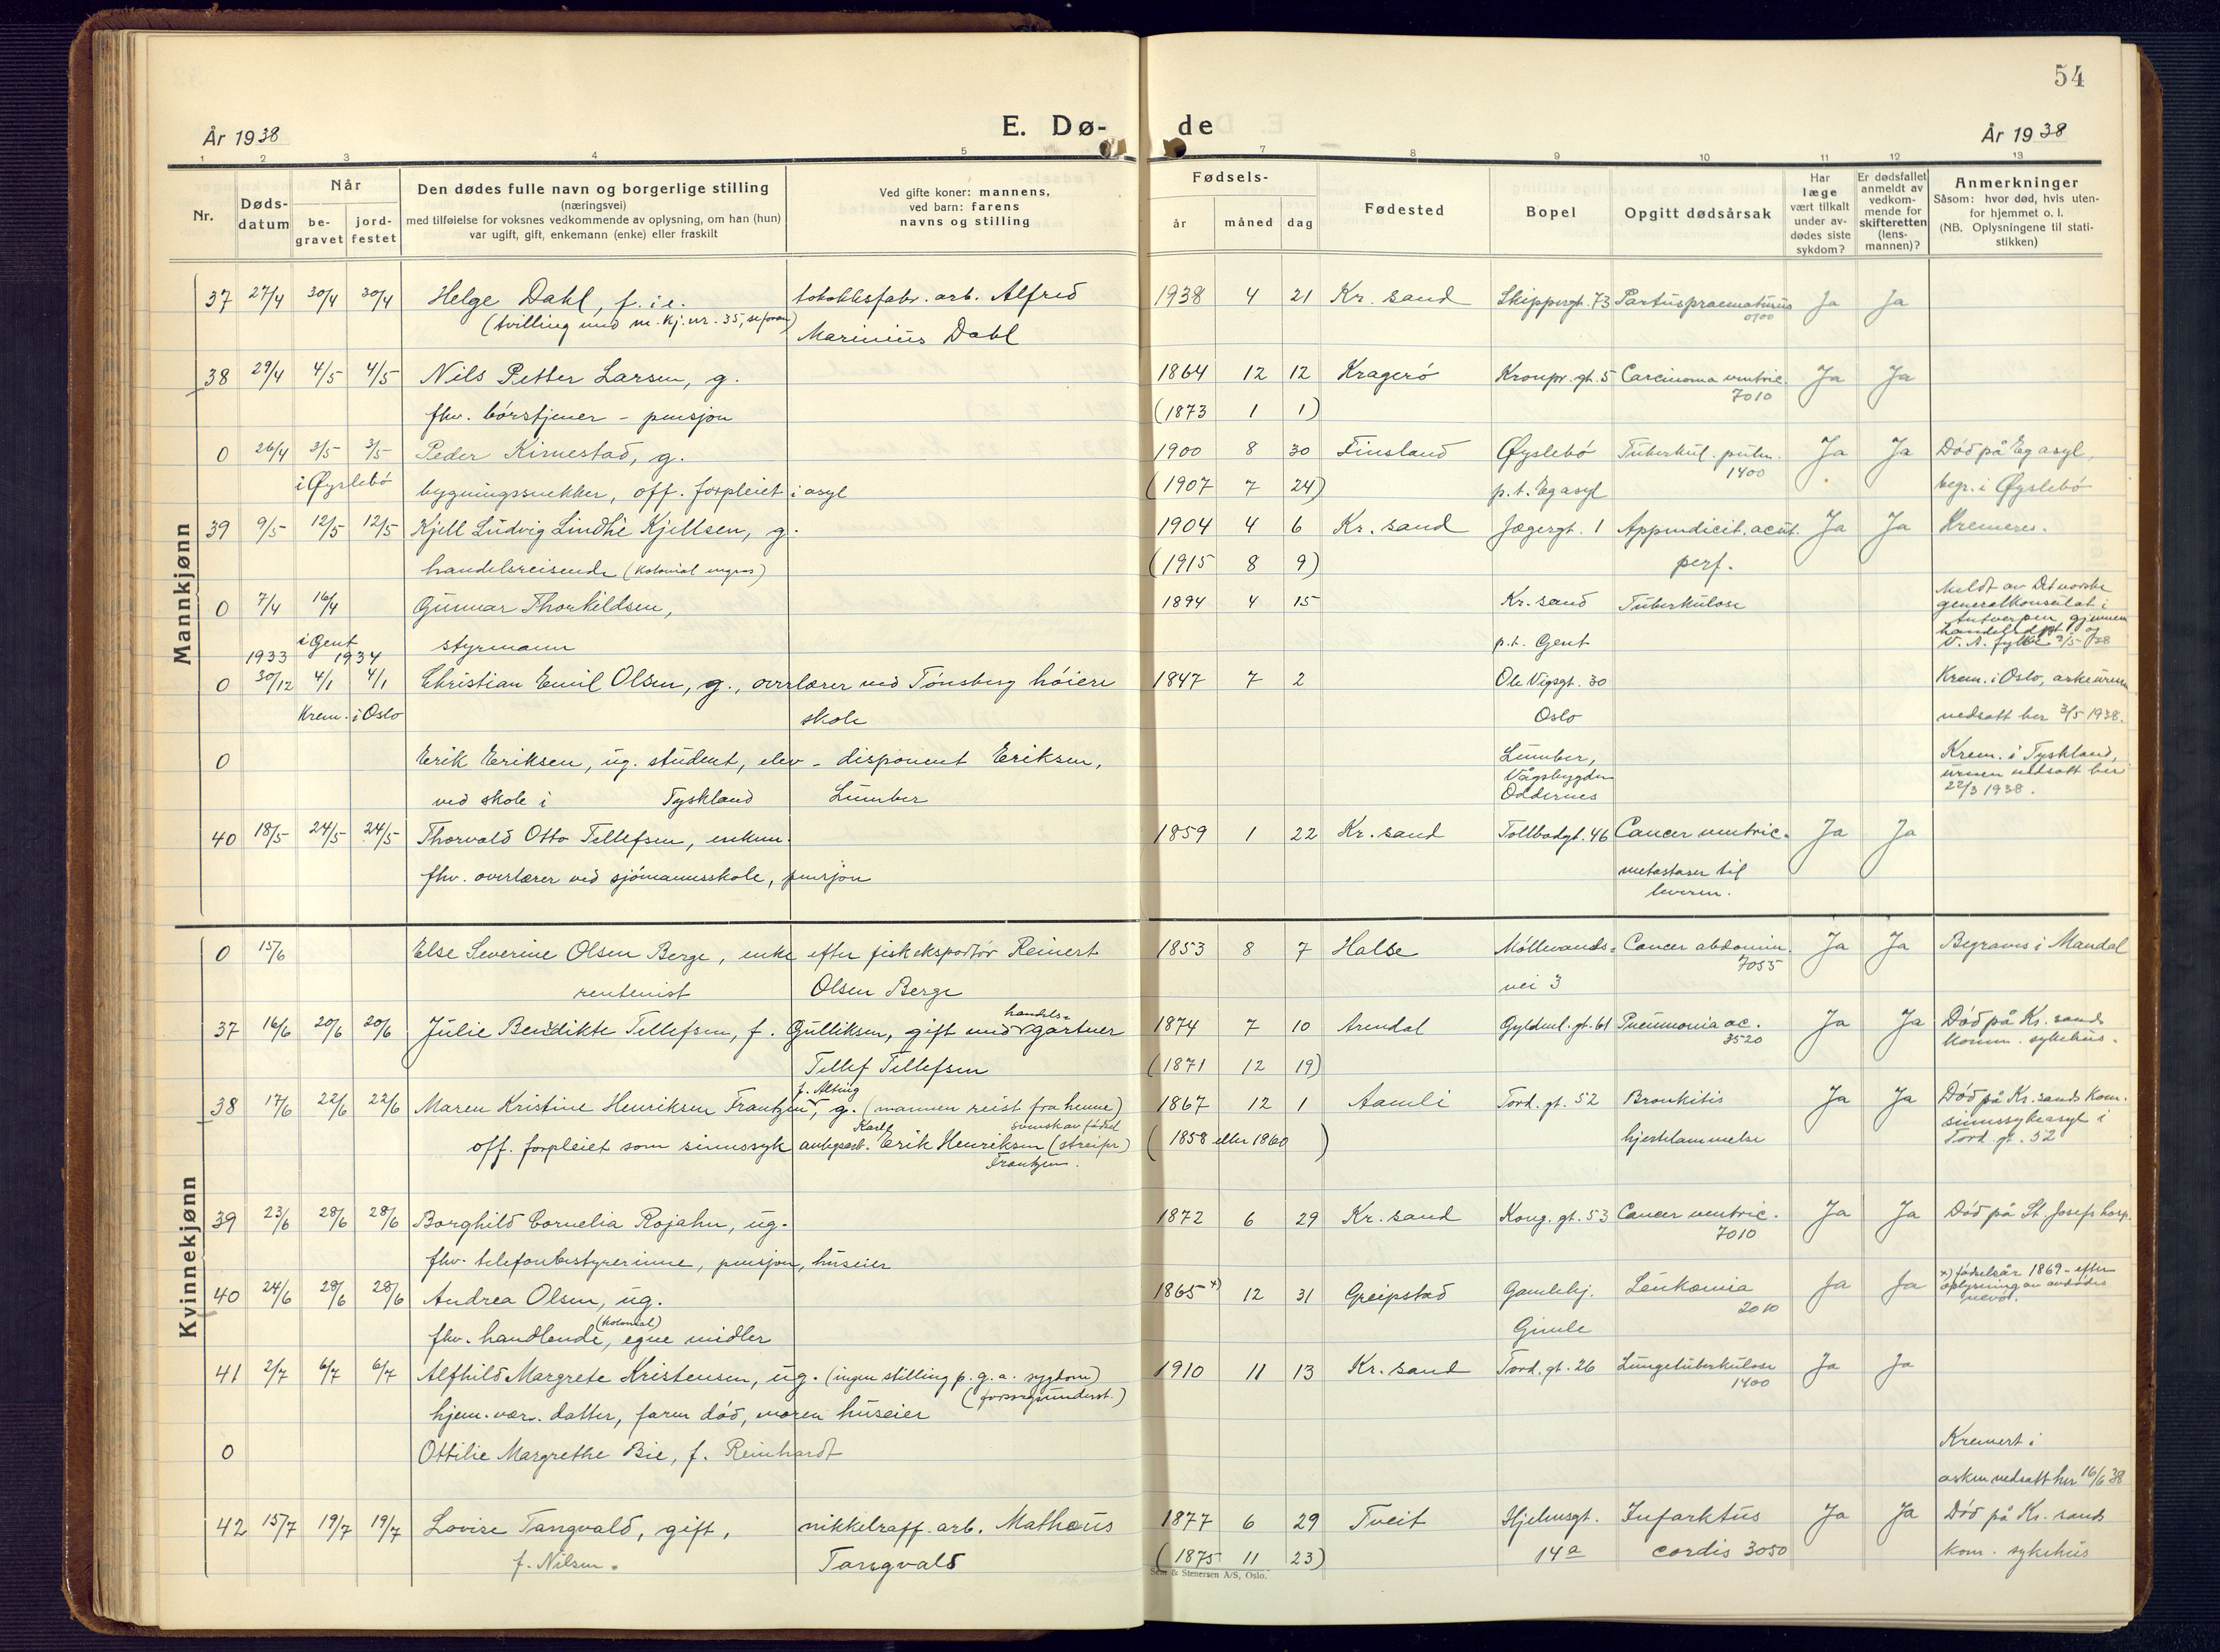 54
År 1938
E. Dø-
de
År 1938
1 2 3 4 5 7 8 9 10 11 12 13
Nr.
Døds-
datum
Når
be-
gravet
jord-
festet
Den dødes fulle navn og borgerlige stilling
(næringsvei)
med tilføielse for voksnes vedkommende av oplysning, om han (hun)
var ugift, gift, enkemann (enke) eller fraskilt
Ved gifte koner: mannens,
ved barn: farens
navns og stilling
Fødsels-
år måned dag
Fødested
Bopel
Opgitt dødsårsak
Har
læge
vært tilkalt
under av-
dødes siste
sykdom?
Er dødsfallet
anmeldt av
vedkom-
mende for
skifteretten
(lens-
mannen)?
Anmerkninger
Såsom: hvor død, hvis uten-
for hjemmet o. l.
(NB. Oplysningene til stati-
stikken)
Mannkjønn
37 27/4 30/4 30/4 Helge Dahl, f. i. e. Alfred 1938 4 21 Kr. sand Skippergt. 73 Partus praematurus Ja Ja
(tvilling med m. kj. nr. 35, se foran) Marinius Dahl 0700
38 29/4 4/5 4/5 Nils Petter Larsen, g. 1864 12 12 Kragerö Kronpr. gt. 5 Carcinoma ventric. Ja Ja
fhv. börstjener - pensjon (1873 1 1) 7010
0 26/4 3/5 3/5 Peder Kirnestad, g. 1900 8 30 Finsland Øyslebö Tuberkul. pulm. Ja Ja Död på Eg asyl,
i Øyslebö bygningssnekker, off. forpleiet i asyl (1907 7 24) p.t. Eg asyl 1400 begr. i Øyslebö
39 9/5 12/5 12/5 Kjell Ludvig Lindhé Kjellsen, g. 1904 4 6 Kr. sand Jægergt. 1 Appendicit. acut. Ja Ja Kremeres.
handelsreisende (kolonial engros) (1915 8 9) perf.
0 7/4 16/4 Gunnar Thorkildsen, 1894 4 15 Kr. sand Tuberkulose Meldt av Det norske
generalkonsulat i
Antwerpen gjennem
i Gent styrmann p.t. Gent V. A. fylke
1933 1934
0 30/12 4/1 4/1 Christian Emil Olsen, g., overlærer ved Tönsberg höiere 1847 7 2 Ole Vigsgt. 30 Krem. i Oslo, askeurnen
Krem. i Oslo skole Oslo nedsatt her 3/5 1938.
0 Erik Eriksen, ug. student, elev - disponent Eriksen, Lumber, Krem. i Tyskland,
Vågsbygden urnen nedsatt her
ved skole i Tyskland Lumber Oddernes 22/3 1938.
40 18/5 24/5 24/5 Thorvald Otto Tellefsen, enkem. 1859 1 22 Kr. sand Tollbodgt. 46 Cancer ventric. Ja Ja
fhv. overlærer ved sjömannsskole, pensjon metastaser til
leveren.
Kvinnekjønn
0 15/6 Else Severine Olsen Berge, enke efter fiskeksportör Reinert 1853 8 7 Halse Möllevands- Cancer abdomin. Ja Ja Begraves i Mandal
rentenist Olsen Berge vei 3 7055
37 16/6 20/6 20/6 Julie Bendikte Tellefsen, f. Gulliksen, gift med handels-gartner 1874 7 10 Arendal Gyldenl. gt. 61 Pneumonia ac. Ja Ja Död på Kr. sands
Tellef Tellefsen (1871 12 19) 3520 komm. sykehus.
38 17/6 22/6 22/6 Maren Kristine Henriksen Frantzen, f. Alting g. (mannen reist fra henne) 1867 12 1 Aamli Tord. gt. 52 Bronkitis Ja Ja Död på Kr. sands kom.
svensk av födsel sinnssykeasyl i
off. forpleiet som sinnssyk anlegsarb. Karl Erik Henriksen (streifer) (1858 eller 1860) hjertelammelse Tord. gt. 52
Frantzen.
39 23/6 28/6 28/6 Borghild Cornelia Rojahn, ug. 1872 6 29 Kr. sand Kong. gt. 53 Cancer ventric. Ja Ja Död på St. Josefs hosp.
fhv. telefonbestyrerinne, pensjon, huseier 7010
40 24/6 28/6 28/6 Andrea Olsen, ug. 1865 x) 12 31 Greipstad Gamlehj. Leukæmia Ja Ja x) födselsår 1869 - efter
oplysning av avdödes
fhv. handlende, (kolonial) egne midler Gimle 2010 nevö.
41 2/7 6/7 6/7 Alfhild Margrete Kristensen, ug. (ingen stilling p. g. a. sygdom) 1910 11 13 Kr. sand Tord. gt. 26 Lungetuberkulose Ja Ja
(forsorgsunderst.) 1400
hjem. vær. datter, faren död, moren huseier
0 Ottilie Margrethe Bie, f. Reinhardt Kremert i
asken nedsatt her 16/6 38
42 15/7 19/7 19/7 Lovise Tangvald, gift, nikkelraff. arb. Mathæus 1877 6 29 Tveit Hjelmsgt. Infarktus Ja Ja Död på Kr. sands
f. Nilsen. Tangvald (1875 11 23) 14a cordis 3050 kom. sykehus
Sem & Stenersen A/S, Oslo.